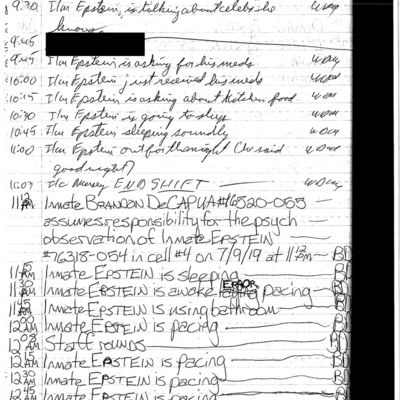 9:30 I/m Epstein, is talking about celebs he
knows.
9:45
9:47 I/m Epstein is asking for his meds
10:00 I/m Epstein just received his meds
10:15 I/m Epstein is asking about kitchen food
10:30 I/m Epstein is going to sleep
10:45 I/m Epstein sleeping soundly
11:00 I/m Epstein out for the night (he said
good night)
11:07 I/c END SHIFT
11:12 AM Inmate BRANDON DeCAPUA #16520-055
assumes responsibility for the psych
observation of Inmate EPSTEIN
#76318-054 in cell #4 on 7/9/19 at 11:12 pm BD
11:15 Inmate EPSTEIN is sleeping BD
11:30 Inmate EPSTEIN is awake ERROR pacing BD
11:45 Inmate EPSTEIN is using bathroom BD
12:00 AM Inmate EPSTEIN is pacing BD
12:08 AM Staff rounds BD
12:15 AM Inmate EPSTEIN is pacing BD
12:30 AM Inmate EPSTEIN is pacing BD
12:45 AM Inmate EPSTEIN is pacing BD